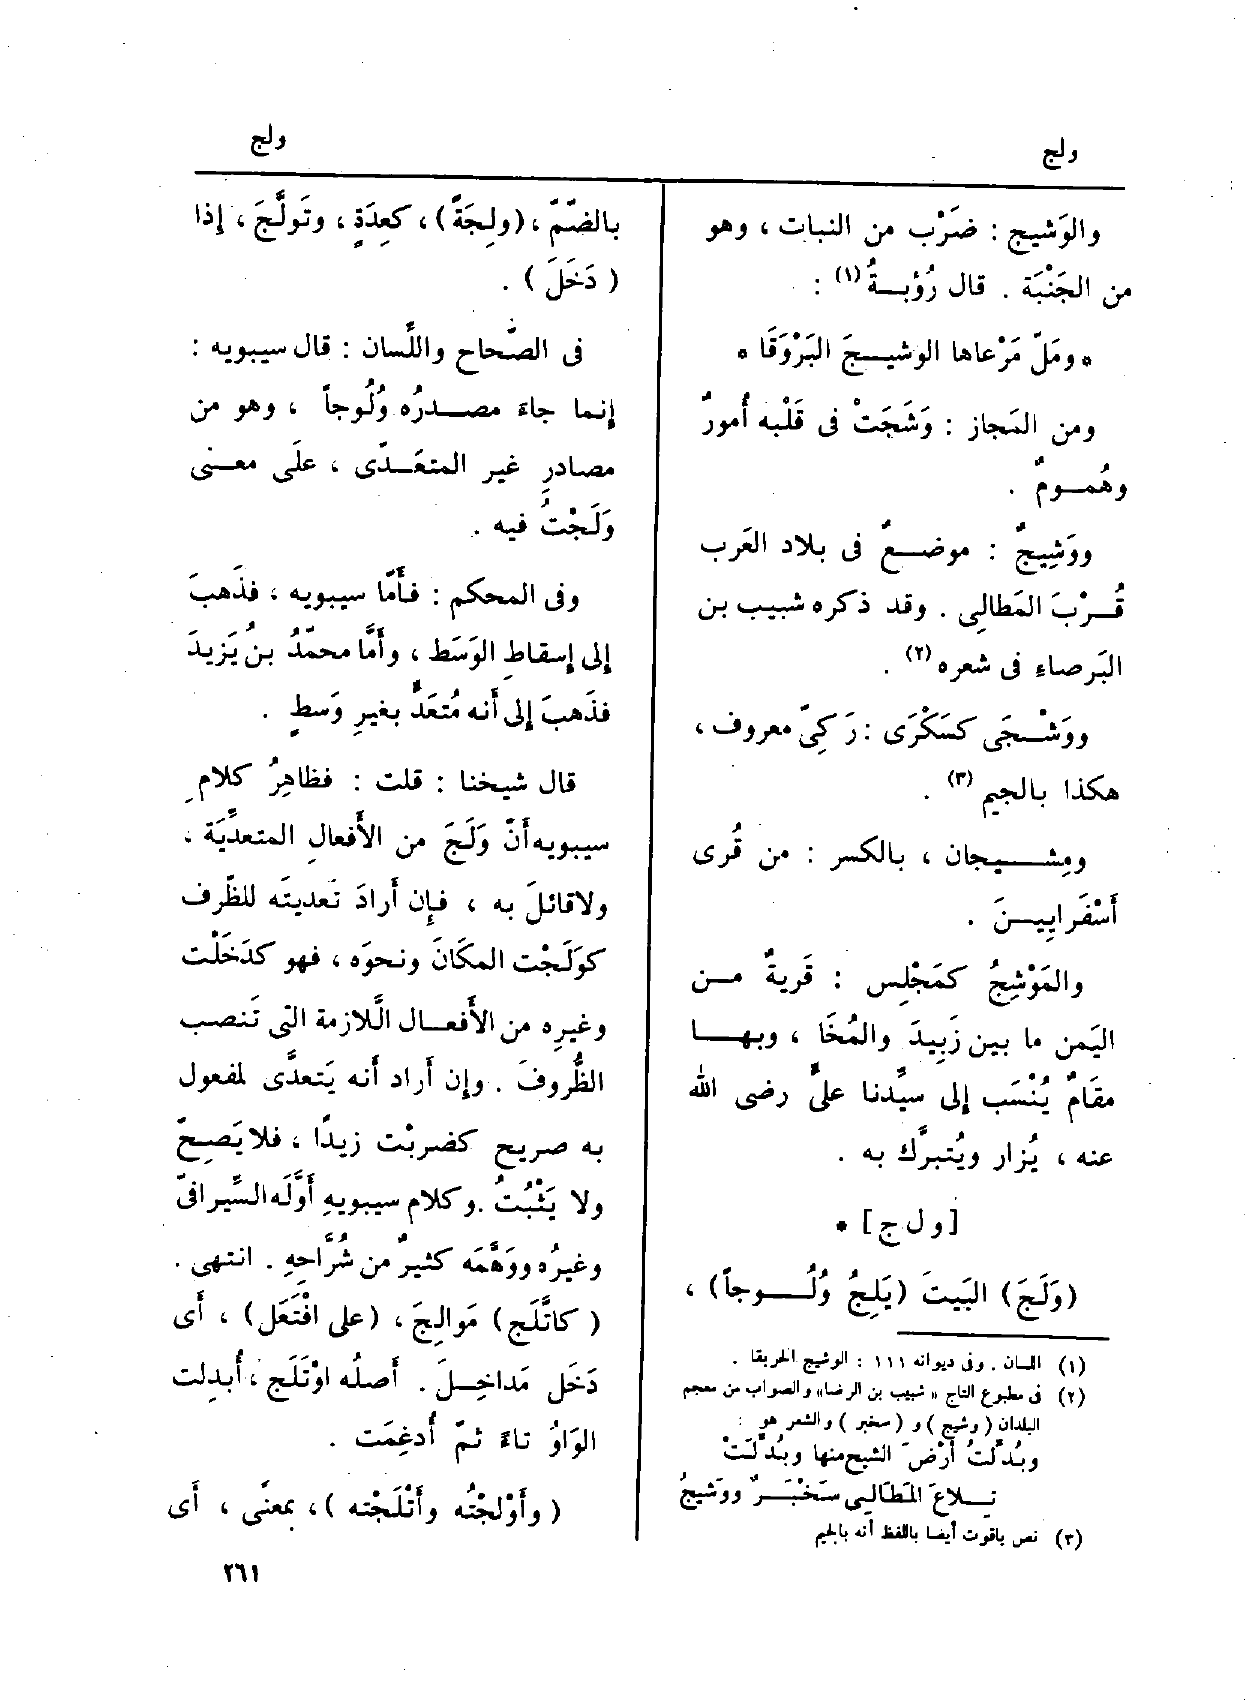 ولج
ولج
والوَشيج : ضَرْب من النبات ، وهو
من الجَنْبَة . قال رُؤبــةُ (١) :
* ومَلّ مَرْعاها الوشيــجَ البَرْوَقَا *
ومن المَجاز : وَشَجَتْ فى قَلْبه أُمورٌ
وهُمــومٌ .
ووَشِيجٌ : موضــعٌ فى بلاد العَرب
قُــرْبَ المَطالِى . وقد ذكره شبيب بن
البَرصاء فى شعره (٢) .
ووَشْــجَى كسَكْرَى : رَكِىّ معروف ،
هكذا بالجيم (٣) .
ومِشــيجان ، بالكسر : من قُرى
أَسْفَرايِيــنَ .
والمَوْشِجُ كمَجْلِس : قَريةٌ مــن
اليَمن ما بين زَبِيدَ والمُخَا ، وبهــا
مقَامٌ يُنْسَب إلى سيِّدنا علىٍّ رضى الله
عنه ، يُزار ويُتبرَّك به .
[ و ل ج ] *
(وَلَجَ) البَيتَ (يَلِجُ وُلُــوجاً) ،
(١) اللسان . وفى ديوانه ١١١ : الوشيج الخربقا .
(٢) فى مطبوع التاج « شبيب بن الرضا » والصواب من معجم
البلدان ( وشيج ) و ( سخبر ) والشعر هو :
وبُدِّلتُ أرْضَ الشيح منها وبُدِّلَتْ
تِــلاعَ المَطالِى سَخْبَــرٌ ووَشيجُ
(٣) نص ياقوت أيضا باللفظ أنه بالجيم
بالضّمّ ، (ولِجَةً) ، كعِدَةٍ ، وتَولَّجَ ، إذا
( دَخَلَ ) .
فى الصّحاح واللِّسان : قال سيبويه :
إنما جاءَ مصــدرُه وُلُوجاً ، وهو من
مصادرِ غير المتعَــدِّى ، علَى معــنى
وَلَجْتُ فيه .
وفى المحكم : فأَمّا سيبويه ، فذَهبَ
إلى إسقاطِ الوَسَط ، وأَمَّا محمّدُ بنُ يَزيدَ
فذَهبَ إلى أَنه مُتعَدٍّ بغيرِ وَسطٍ .
قال شيخنا : قلت : فظاهِرُ كلامِ
سيبويه أَنّ وَلَجَ من الأَفعالِ المتعدِّيَة ،
ولا قائلَ به ، فإن أَرادَ تَعديتَه للظّرف
كوَلَجْت المكَانَ ونحوَه ، فهو كدَخَلْت
وغيرِه من الأَفعــال الَّلازمة التى تَنصب
الظُّروفَ . وإن أَراد أَنه يَتعدَّى لمفعول
به صريح كضربْت زيدًا ، فلا يَصِحّ
ولا يَثْبُتُ . وكلام سيبويهِ أَوَّلَه السِّيرافىّ
وغيرُه ووَهَّمَه كثيرٌ من شُرَّاحِهِ . انتهى .
( كاتَّلَج ) مَوالِجَ ، (على افْتَعَل) ، أَى
دَخَل مَداخِــلَ . أَصلُه اوْتَلَج ، أُبدِلت
الوَاوُ تاءً ثمّ أُدغِمَت .
( وأَوْلجْتُه وأَتْلَجْته ) ، بمعنًى ، أَى
٢٦١